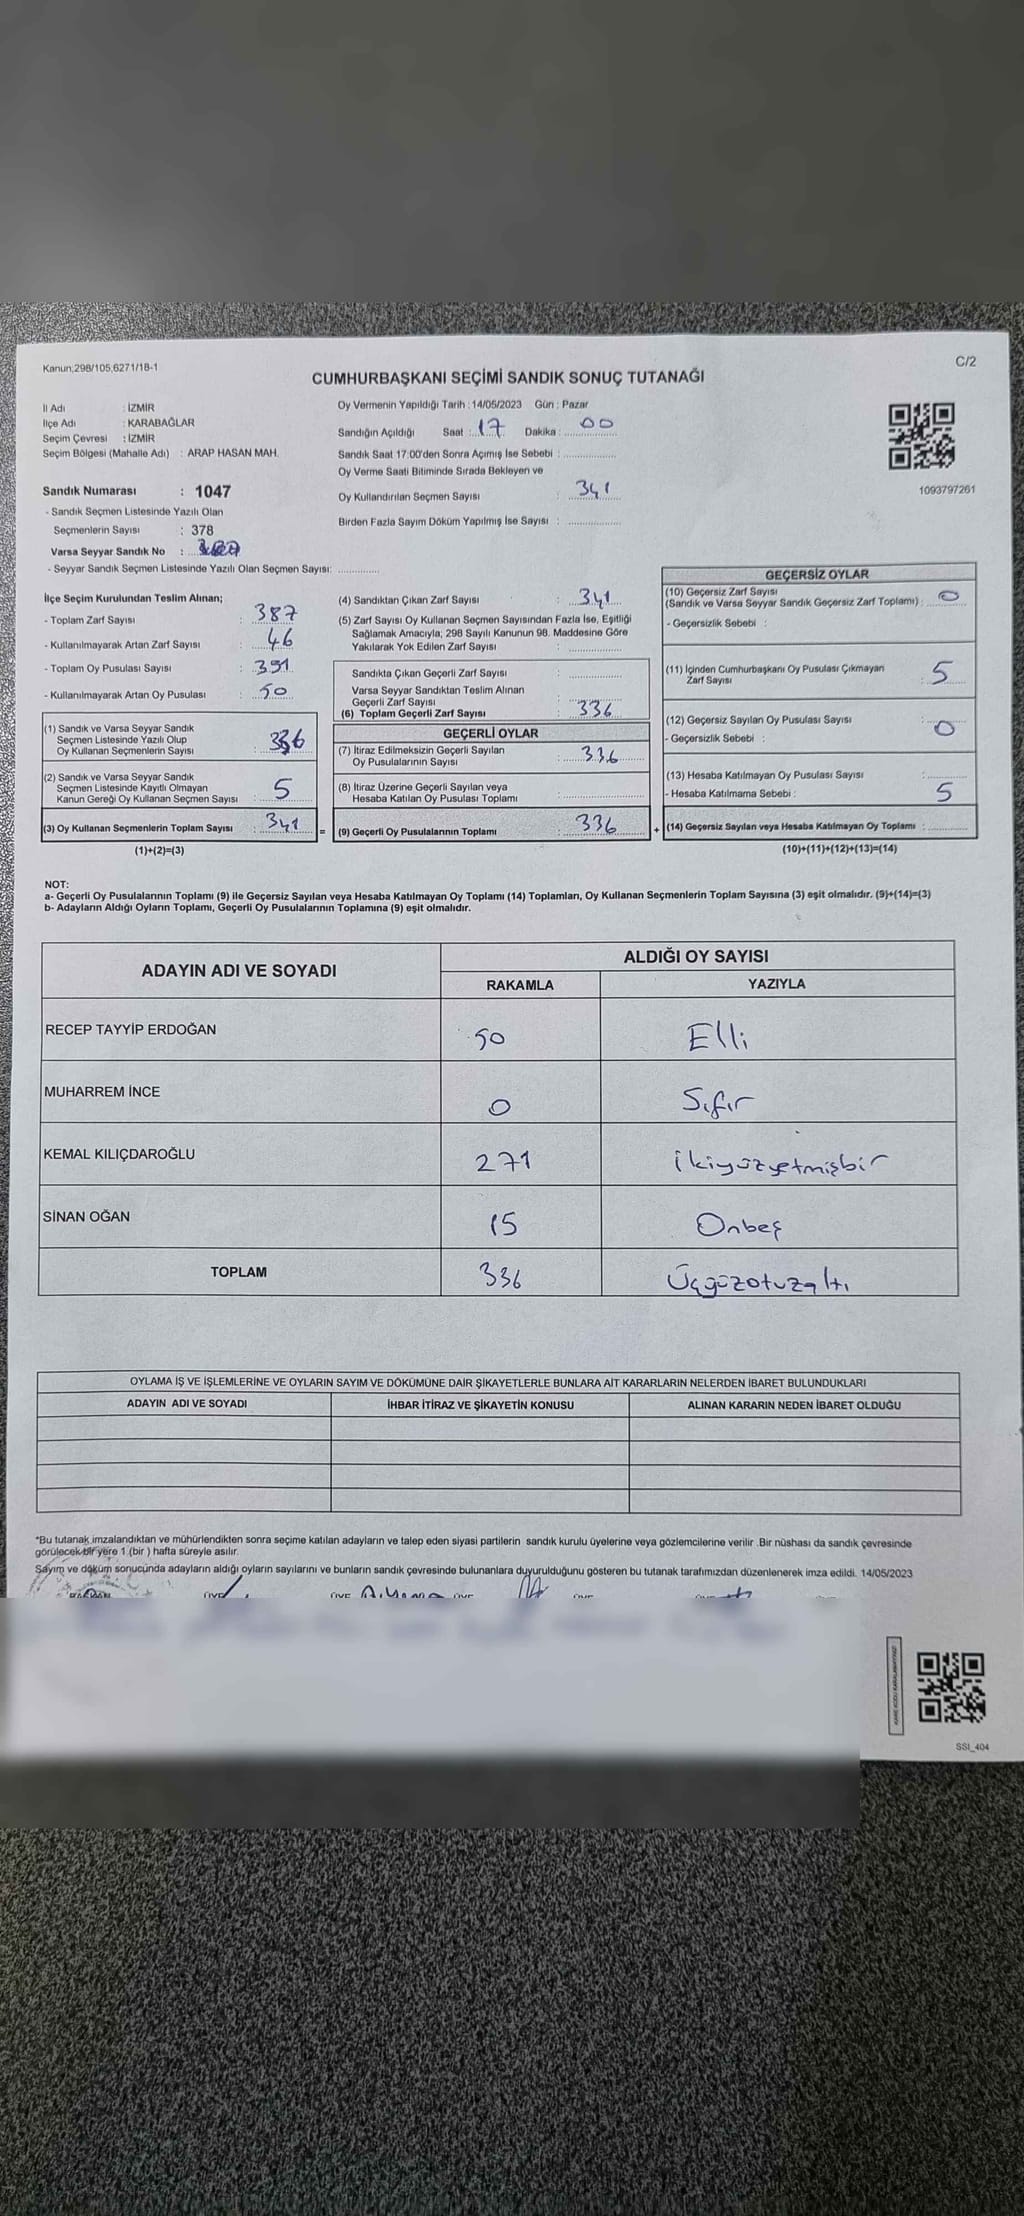 Kanun;298/105,6271/18-1
C/2
CUMHURBAŞKANI SEÇİMİ SANDIK SONUÇ TUTANAĞI
İl Adı : İZMİR
İlçe Adı : KARABAĞLAR
Seçim Çevresi : İZMİR
Seçim Bölgesi (Mahalle Adı) : ARAP HASAN MAH.
Sandık Numarası : 1047
- Sandık Seçmen Listesinde Yazılı Olan
Seçmenlerin Sayısı : 378
Varsa Seyyar Sandık No :
- Seyyar Sandık Seçmen Listesinde Yazılı Olan Seçmen Sayısı: ..............
Oy Vermenin Yapıldığı Tarih : 14/05/2023 Gün : Pazar
Sandığın Açıldığı Saat : 17 Dakika : 00
Sandık Saat 17:00'den Sonra Açımış İse Sebebi : ..............
Oy Verme Saati Bitiminde Sırada Bekleyen ve
Oy Kullandırılan Seçmen Sayısı : 341
Birden Fazla Sayım Döküm Yapılmış İse Sayısı : ..............
1093797261
İlçe Seçim Kurulundan Teslim Alınan;
- Toplam Zarf Sayısı : 387
- Kullanılmayarak Artan Zarf Sayısı : 46
- Toplam Oy Pusulası Sayısı : 391
- Kullanılmayarak Artan Oy Pusulası : 50
(1) Sandık ve Varsa Seyyar Sandık
Seçmen Listesinde Yazılı Olup
Oy Kullanan Seçmenlerin Sayısı : 336
(2) Sandık ve Varsa Seyyar Sandık
Seçmen Listesinde Kayıtlı Olmayan
Kanun Gereği Oy Kullanan Seçmen Sayısı : 5
(3) Oy Kullanan Seçmenlerin Toplam Sayısı : 341 =
(1)+(2)=(3)
(4) Sandıktan Çıkan Zarf Sayısı : 341
(5) Zarf Sayısı Oy Kullanan Seçmen Sayısından Fazla İse, Eşitliği
Sağlamak Amacıyla; 298 Sayılı Kanunun 98. Maddesine Göre
Yakılarak Yok Edilen Zarf Sayısı : ..............
Sandıkta Çıkan Geçerli Zarf Sayısı : ..............
Varsa Seyyar Sandıktan Teslim Alınan
Geçerli Zarf Sayısı : ..............
(6) Toplam Geçerli Zarf Sayısı : 336
GEÇERLİ OYLAR
(7) İtiraz Edilmeksizin Geçerli Sayılan
Oy Pusulalarının Sayısı : 336
(8) İtiraz Üzerine Geçerli Sayılan veya
Hesaba Katılan Oy Pusulası Toplamı : ..............
(9) Geçerli Oy Pusulalarının Toplamı : 336 +
GEÇERSİZ OYLAR
(10) Geçersiz Zarf Sayısı
(Sandık ve Varsa Seyyar Sandık Geçersiz Zarf Toplamı) : 0
- Geçersizlik Sebebi :
(11) İçinden Cumhurbaşkanı Oy Pusulası Çıkmayan
Zarf Sayısı : 5
(12) Geçersiz Sayılan Oy Pusulası Sayısı : 0
- Geçersizlik Sebebi :
(13) Hesaba Katılmayan Oy Pusulası Sayısı : ..............
- Hesaba Katılmama Sebebi : 5
(14) Geçersiz Sayılan veya Hesaba Katılmayan Oy Toplamı : ..............
(10)+(11)+(12)+(13)=(14)
NOT:
a- Geçerli Oy Pusulalarının Toplamı (9) ile Geçersiz Sayılan veya Hesaba Katılmayan Oy Toplamı (14) Toplamları, Oy Kullanan Seçmenlerin Toplam Sayısına (3) eşit olmalıdır. (9)+(14)=(3)
b- Adayların Aldığı Oyların Toplamı, Geçerli Oy Pusulalarının Toplamına (9) eşit olmalıdır.
ADAYIN ADI VE SOYADI
ALDIĞI OY SAYISI
RAKAMLA YAZIYLA
RECEP TAYYİP ERDOĞAN 50 Elli
MUHARREM İNCE 0 Sıfır
KEMAL KILIÇDAROĞLU 271 İkiyüzyetmişbir
SİNAN OĞAN 15 Onbeş
TOPLAM 336 Üçyüzotuzaltı
OYLAMA İŞ VE İŞLEMLERİNE VE OYLARIN SAYIM VE DÖKÜMÜNE DAİR ŞİKAYETLERLE BUNLARA AİT KARARLARIN NELERDEN İBARET BULUNDUKLARI
ADAYIN ADI VE SOYADI İHBAR İTİRAZ VE ŞİKAYETİN KONUSU ALINAN KARARIN NEDEN İBARET OLDUĞU
*Bu tutanak imzalandıktan ve mühürlendikten sonra seçime katılan adayların ve talep eden siyasi partilerin sandık kurulu üyelerine veya gözlemcilerine verilir .Bir nüshası da sandık çevresinde
görülecek bir yere 1 (bir ) hafta süreyle asılır.
Sayım ve döküm sonucunda adayların aldığı oyların sayılarını ve bunların sandık çevresinde bulunanlara duyurulduğunu gösteren bu tutanak tarafımızdan düzenlenerek imza edildi. 14/05/2023
SSI_404